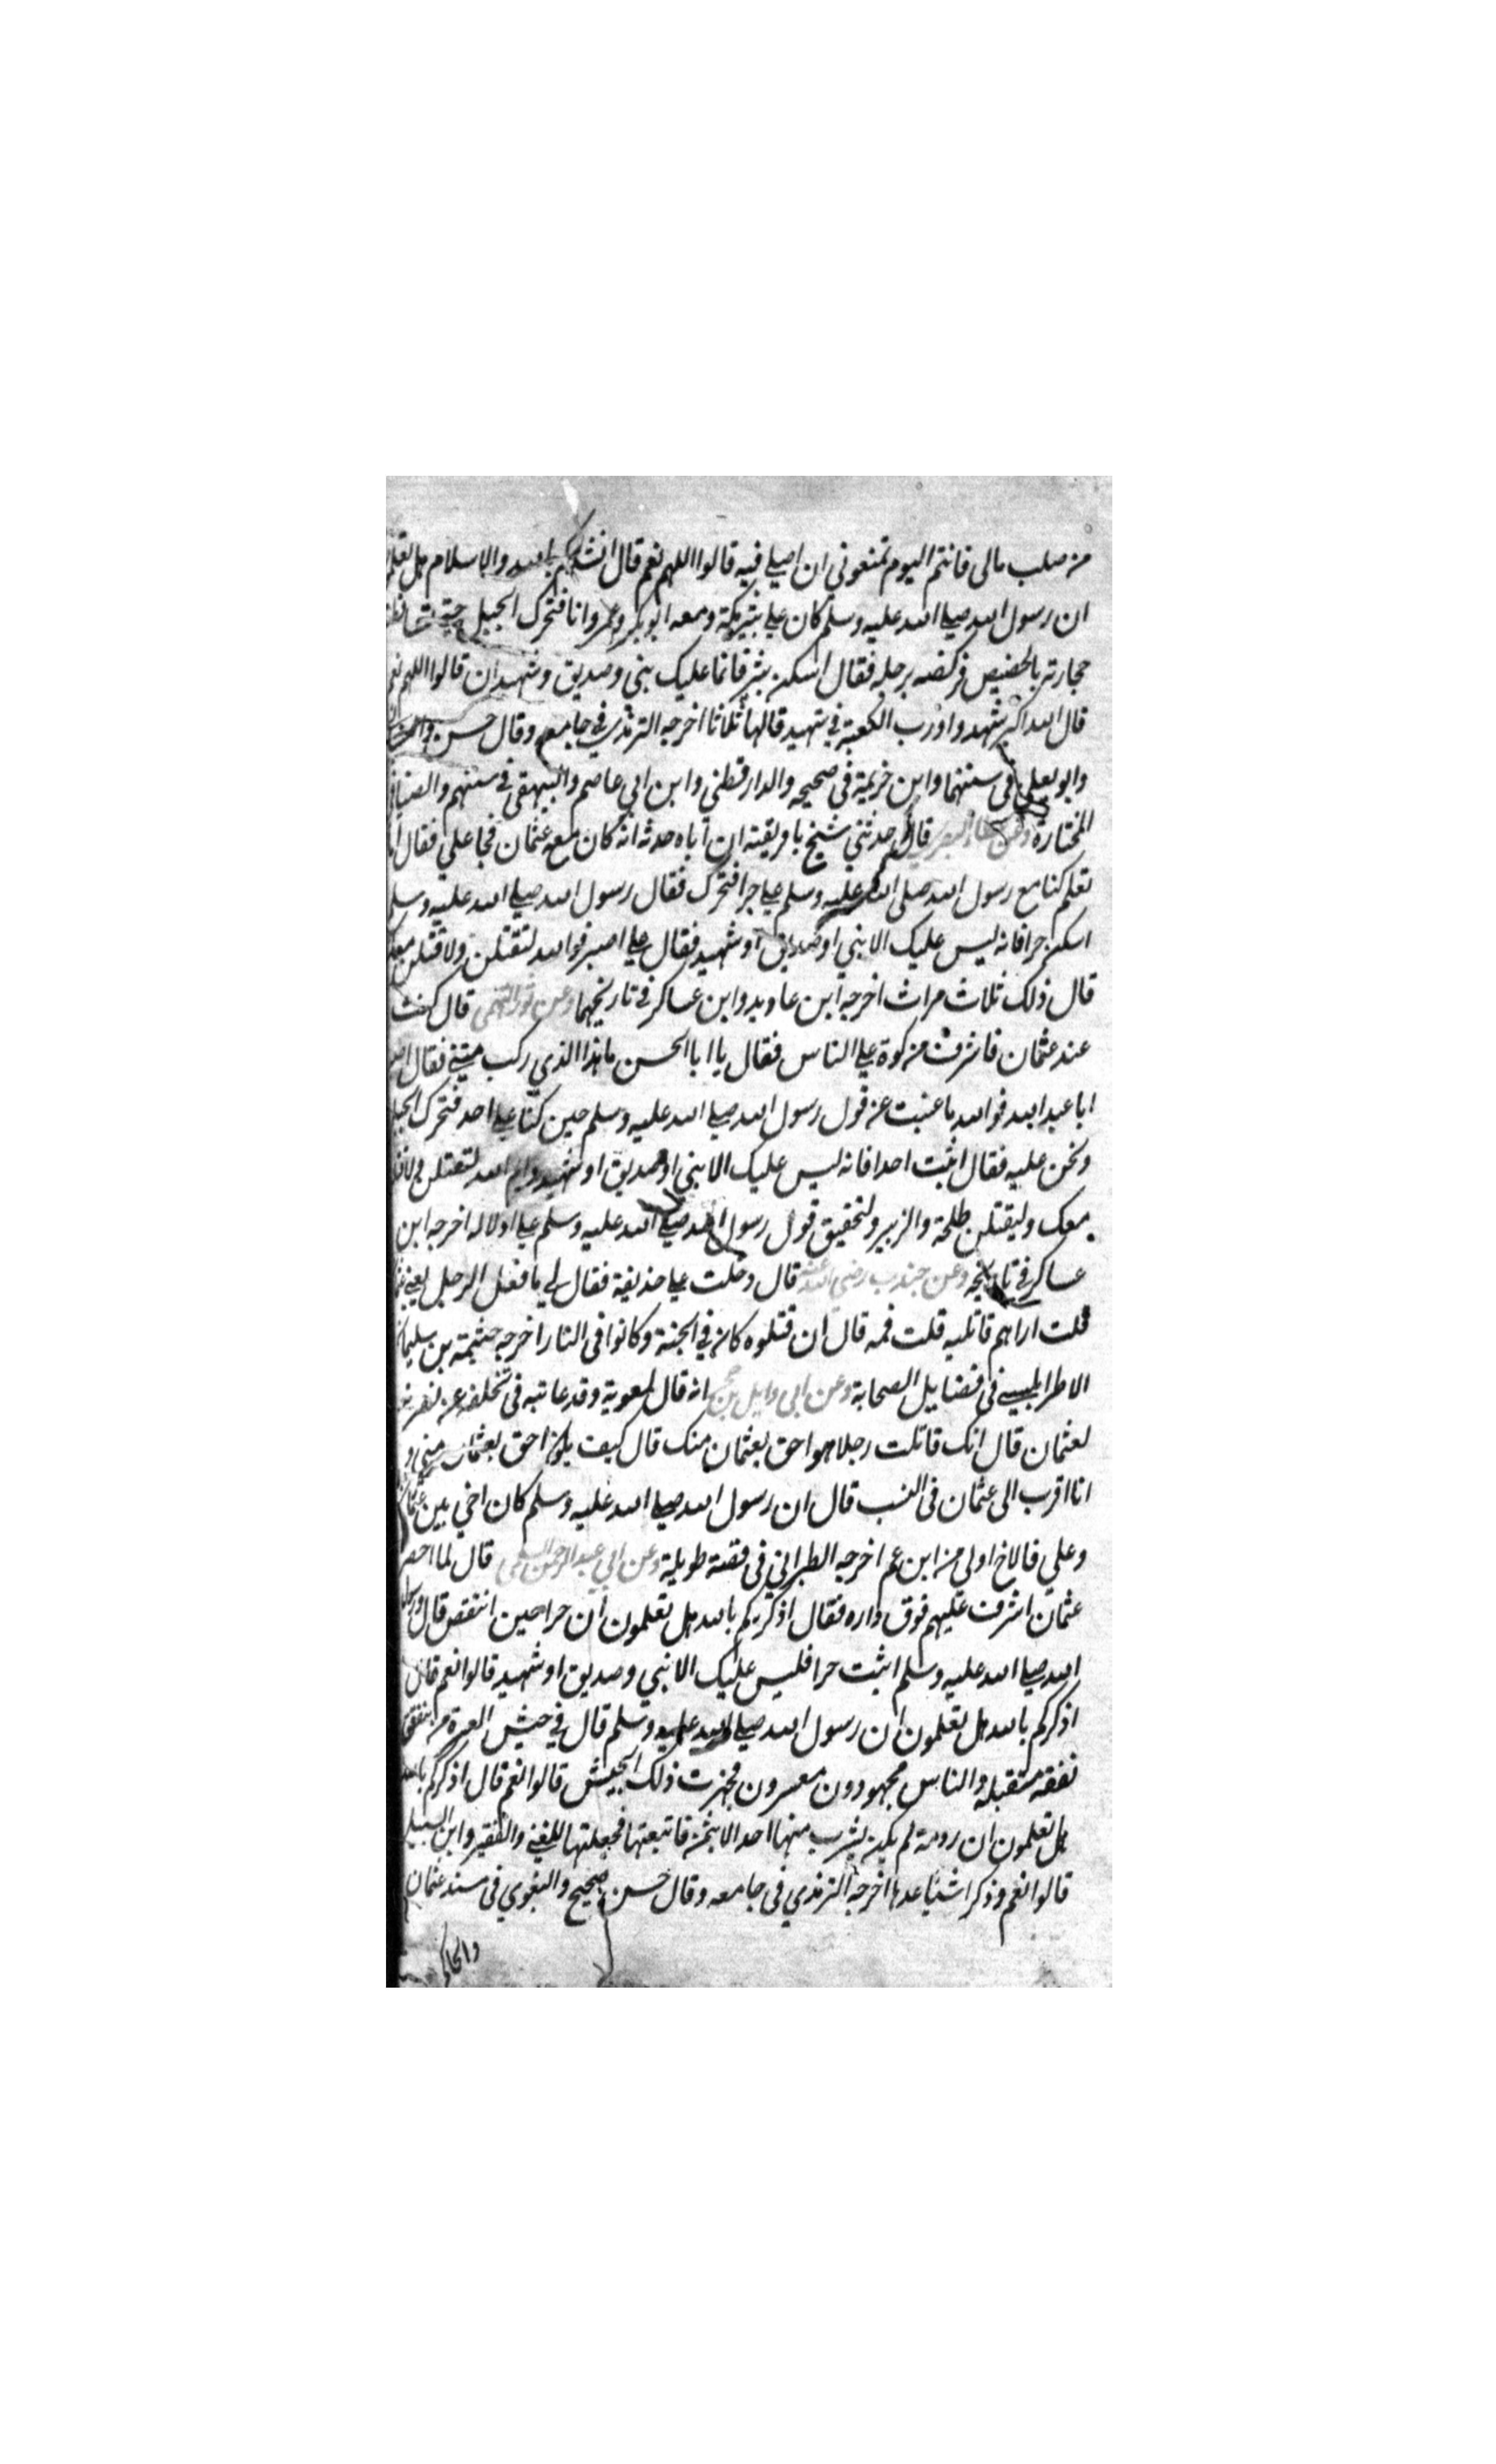 من صلب مالى فانتم اليوم تمنعونى ان اصلي فيه قالوا اللهم نعم قال انشدكم بالله والاسلام هل تعلمو
ان رسول الله صلي الله عليه وسلم كان علي ثبير مكة ومعه ابو بكر وعمر وانا فتحرك الجبل حتى تساقطت
حجارته بالحضيض فركضه برجله فقال اسكن ثبير فانما عليك نبي وصديق وشهيدان قالوا اللهم نعم
قال الله اكبر شهدوا ورب الكعبة اني شهيد قالها ثلاثا اخرجه الترمذي في جامعه وقال حسن
وابو يعلي في سننهما وابن خزيمة في صحيحه والدارقطني وابن ابي عاصم والبيهقي في سننهم والضيا في
المختارة وعن قال حدثني شيخ بافريقية ان اباه حدثه انه كان مع عثمان فجا علي فقال
تعلم كنا مع رسول الله صلى الله عليه وسلم علي حرا فتحرك فقال رسول الله صلي الله عليه وسلم
اسكن حرا فانه ليس عليك الا نبي او صديق او شهيد فقال علي اصبر فوالله لتقتلن ولاقتلن معك
قال ذلك ثلاث مرات اخرجه ابن عاويد وابن عساكر في تاريخيهما وعن قال كنت
عند عثمان فاشرف من كوة علي الناس فقال يا ابا الحسن ما هذا الذي ركب متني فقال
ابا عبد الله فوالله ما غبت عن قول رسول الله صلي الله عليه وسلم حين كنا علي احد فتحرك الجبل
ونحن عليه فقال اثبت احد فانه ليس عليك الا نبي او صديق او شهيد وايم الله لتقتلن ولاقتلن
معك وليقتلن طلحة والزبير ولتحقيق قول رسول الله صلي الله عليه وسلم اخرجه ابن
عساكر في تاريخه وعن جندب رضى الله عنه قال دخلت علي حذيفة فقال لي ما فعل الرجل يعني
قلت اراهم قاتليه قلت فمه قال ان قتلوه كان في الجنة وكانوا في النار اخرجه خيثمة بن سليمان
الاطرابلسي في فضايل الصحابة وعن ابي وايل بن حجر انه قال لمعوية وقد عاتبه في تخلفه عن نصرته
لعثمان قال انك قاتلت رجلا هو احق بعثمان منك قال كيف يكون احق بعثمان مني و
انا اقرب الى عثمان فى النسب قال ان رسول الله صلي الله عليه وسلم كان اخي بين عثمان
وعلي فالاخ اولى من ابن عم اخرجه الطبراني في قصة طويلة وعن ابي عبد الرحمن السلمى قال لما احصر
عثمان اشرف عليهم فوق داره فقال اذكركم بالله هل تعلمون ان حرا حين انتفض قال رسول
الله صلي الله عليه وسلم اثبت حرا فليس عليك الا نبي وصديق او شهيد قالوا نعم قال
اذكركم بالله هل تعلمون ان رسول الله صلي الله عليه وسلم قال في جيش العسرة من ينفق
نفقة متقبلة والناس مجهودون معسرون فجهزت ذلك الجيش قالوا نعم قال اذكركم بالله
هل تعلمون ان رومة لم يكن يشرب منها احد الا بثمن فابتعتها فجعلتها للغني والفقير وابن السبيل
قالوا نعم وذكر اشيا عدها اخرجه الترمذي في جامعه وقال حسن صحيح والبغوي في مسند عثمان
والحاكم